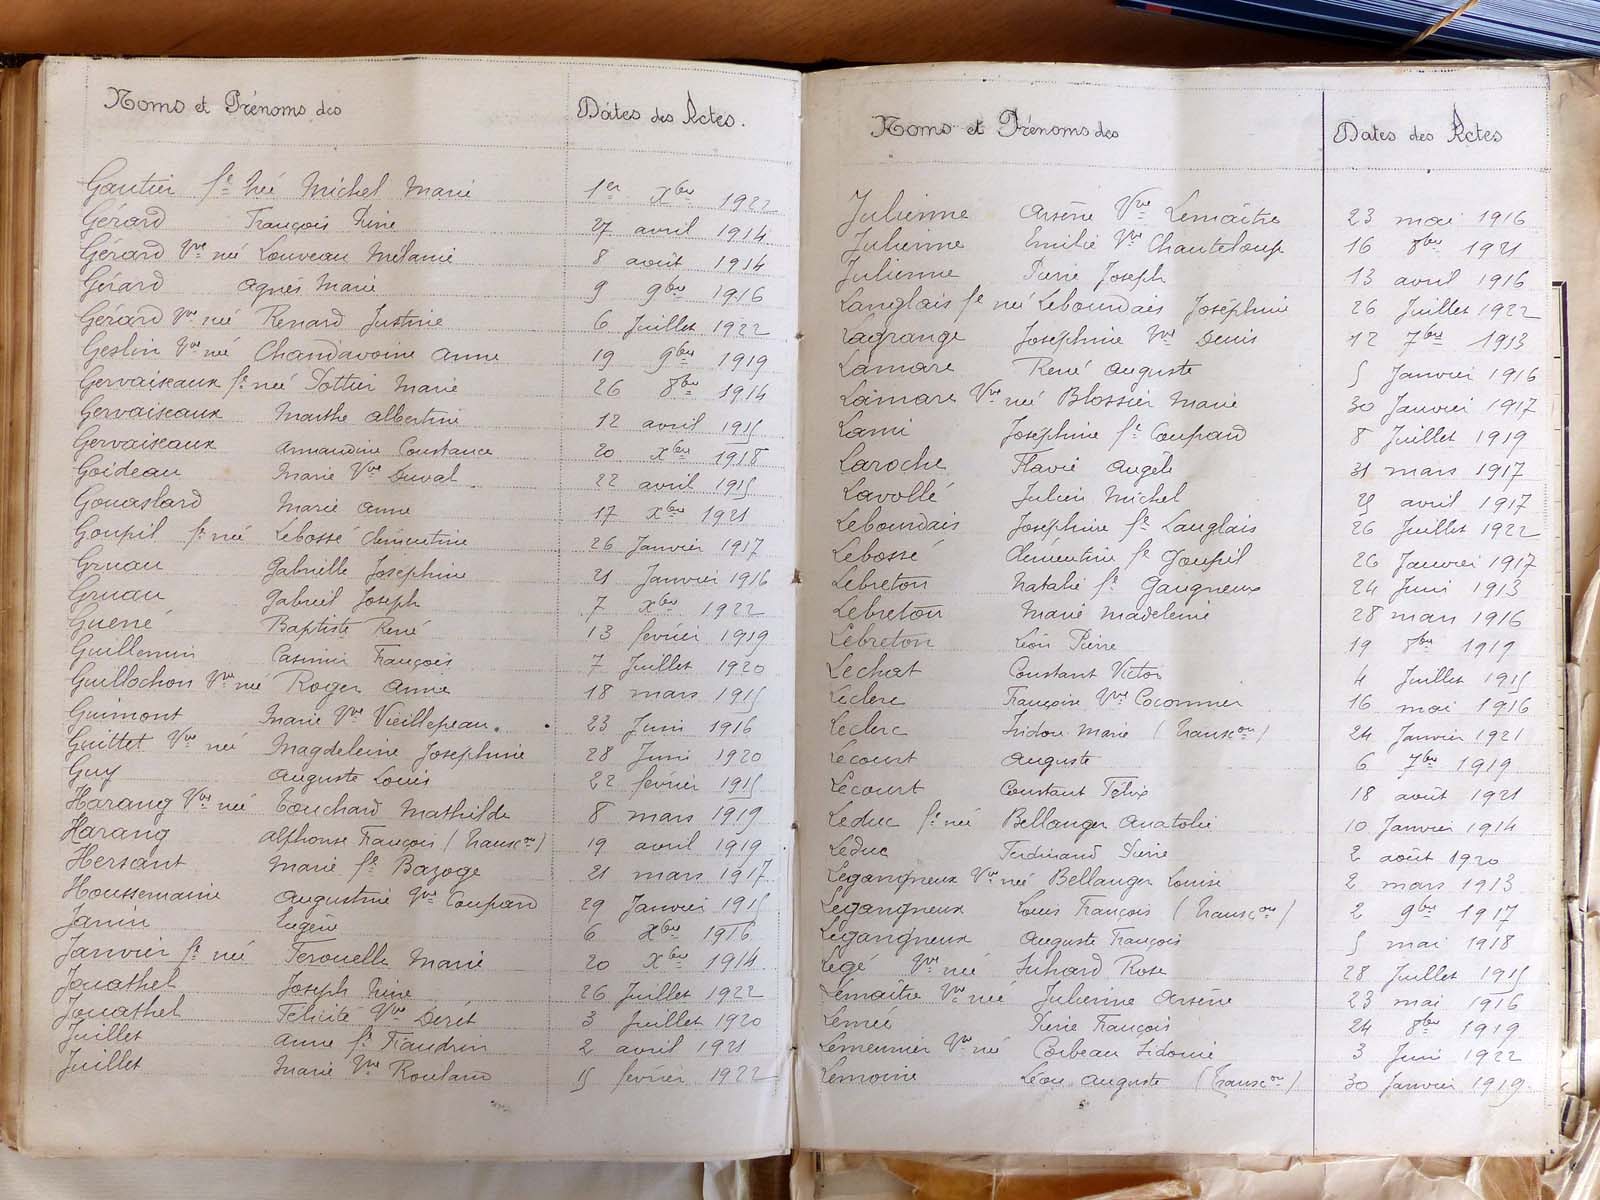 Noms et Prénoms des Dates des Actes.
Gautier fe née Michel Marie 1er Xbre 1922
Gérard François René 27 avril 1914
Gérard Vve née Louveau Mélanie 8 août 1914
Gérard Agnès Marie 9 9bre 1916
Gérard Vve née Renard Justine 6 Juillet 1922
Geslin Vve née Chandavoine Anne 19 9bre 1919
Gervaiseaux fe née Pottier Marie 26 8bre 1914
Gervaiseaux Marthe Albertine 12 avril 1915
Gervaiseaux Armandine Constance 20 Xbre 1918
Goideau Marie Vve Duval 22 avril 1915
Gouaslard Marie Anne 17 Xbre 1921
Goupil fe née Lebossé Clémentine 26 Janvier 1917
Gruau Gabrielle Joséphine 21 Janvier 1916
Gruau Gabriel Joseph 7 Xbre 1922
Guéné Baptiste René 13 février 1919
Guillemin Casimir François 7 Juillet 1920
Guillochon Vve née Roger Anne 18 mars 1915
Guimont Marie Vve Vieillepeau. 23 Juin 1916
Guittet Vve née Magdeleine Joséphine 28 Juin 1920
Guy Auguste Louis 22 février 1915
Harang Vve née Touchard Mathilde 8 mars 1919
Harang Alphonse François (Transcon) 19 avril 1919
Hersant Marie fe Bazoge 21 mars 1917
Houssemaine Augustine Vve Coupard 29 Janvier 1915
Janin Eugène 6 Xbre 1916
Janvier fe née Ferouelle Marie 20 Xbre 1914
Jouathel Joseph René 26 Juillet 1922
Jouathel Félicité Vve Déret 3 Juillet 1920
Juillet Anne fe Fraudrin 2 avril 1921
Juillet Marie Vve Rouland 15 février 1922
Noms et Prénoms des Dates des Actes
Julienne Arsène Vve Lemaître 23 mai 1916
Julienne Emilie Vve Chanteloup 16 8bre 1921
Julienne Pierre Joseph 13 avril 1916
Langlais fe née Lebourdais Joséphine 26 Juillet 1922
Lagrange Joséphine Vve Denis 12 7bre 1913
Lamare René Auguste 5 Janvier 1916
Lamare Vve née Blossier Marie 30 Janvier 1917
Lami Joséphine fe Coupard 8 Juillet 1919
Laroche Flavie Angèle 31 mars 1917
Lavollé Julien Michel 25 avril 1917
Lebourdais Joséphine fe Langlais 26 Juillet 1922
Lebossé Clémentine fe Goupil 26 Janvier 1917
Lebreton Natalie fe Gaugneux 24 Juin 1913
Lebreton Marie Madeleine 28 mars 1916
Lebreton Léon Pierre 19 8bre 1919
Lechat Constant Victor 4 Juillet 1915
Leclerc Françoise Vve Coconnier 16 mai 1916
Leclerc Isidore Marie (Transcon) 24 Janvier 1921
Lecourt Auguste 6 7bre 1919
Lecourt Constant Félix 18 août 1921
Leduc fe née Bellanger Anatolie 10 Janvier 1914
Leduc Ferdinand Pierre 2 août 1920
Legangneux Vve née Bellanger Louise 2 mars 1913
Legangneux Louis François (Transcon) 2 9bre 1917
Legangneux Auguste François 5 mai 1918
Legé Vve née Suhard Rose 28 Juillet 1915
Lemaître Vve née Julienne Arsène 23 mai 1916
Lemée Pierre François 24 8bre 1919
Lemeunier Vve née Corbeau Sidonie 3 Juin 1922
Lemoine Léon Auguste (Transcon) 30 Janvier 1919